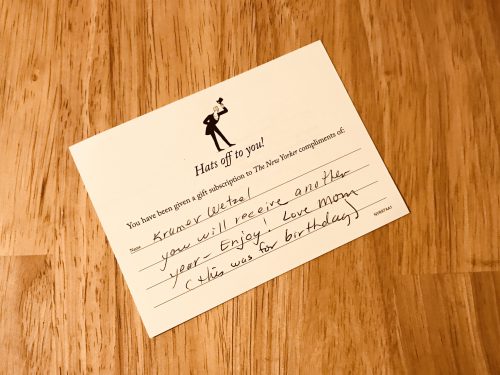 Hats off to you!
You have been given a gift subscription to The New Yorker compliments of:
Name Kramer Wetzel
you will receive another
year - Enjoy! Love Mom
(this was for birthday)